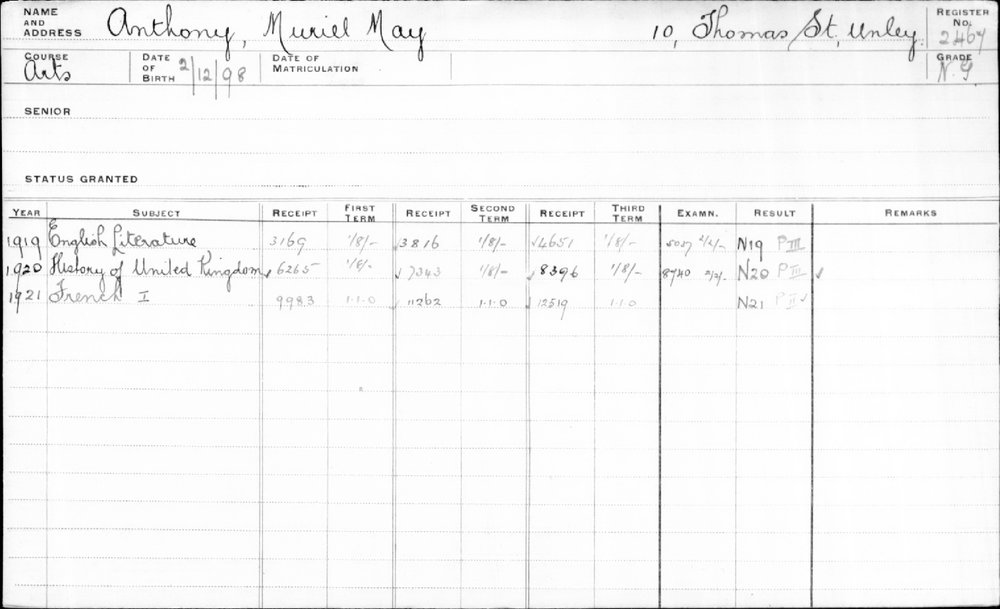 NAME AND ADDRESS Anthony, Muriel May 10, Thomas St, Unley. REGISTER No. 2467
COURSE Arts DATE OF BIRTH 2/12/98 DATE OF MATRICULATION GRADE N.G
SENIOR
STATUS GRANTED
YEAR SUBJECT RECEIPT FIRST TERM RECEIPT SECOND TERM RECEIPT THIRD TERM EXAMN. RESULT REMARKS
1919 English Literature 3169 1/8/- 3816 1/8/- 4651 1/8/- 5057 2/2/- N19 P III
1920 History of United Kingdom 6265 1/8/- 7343 1/8/- 8396 1/8/- 8740 2/2/- N20 P III
1921 French I 9983 1.1.0 11262 1.1.0 12519 1.1.0 N21 P II